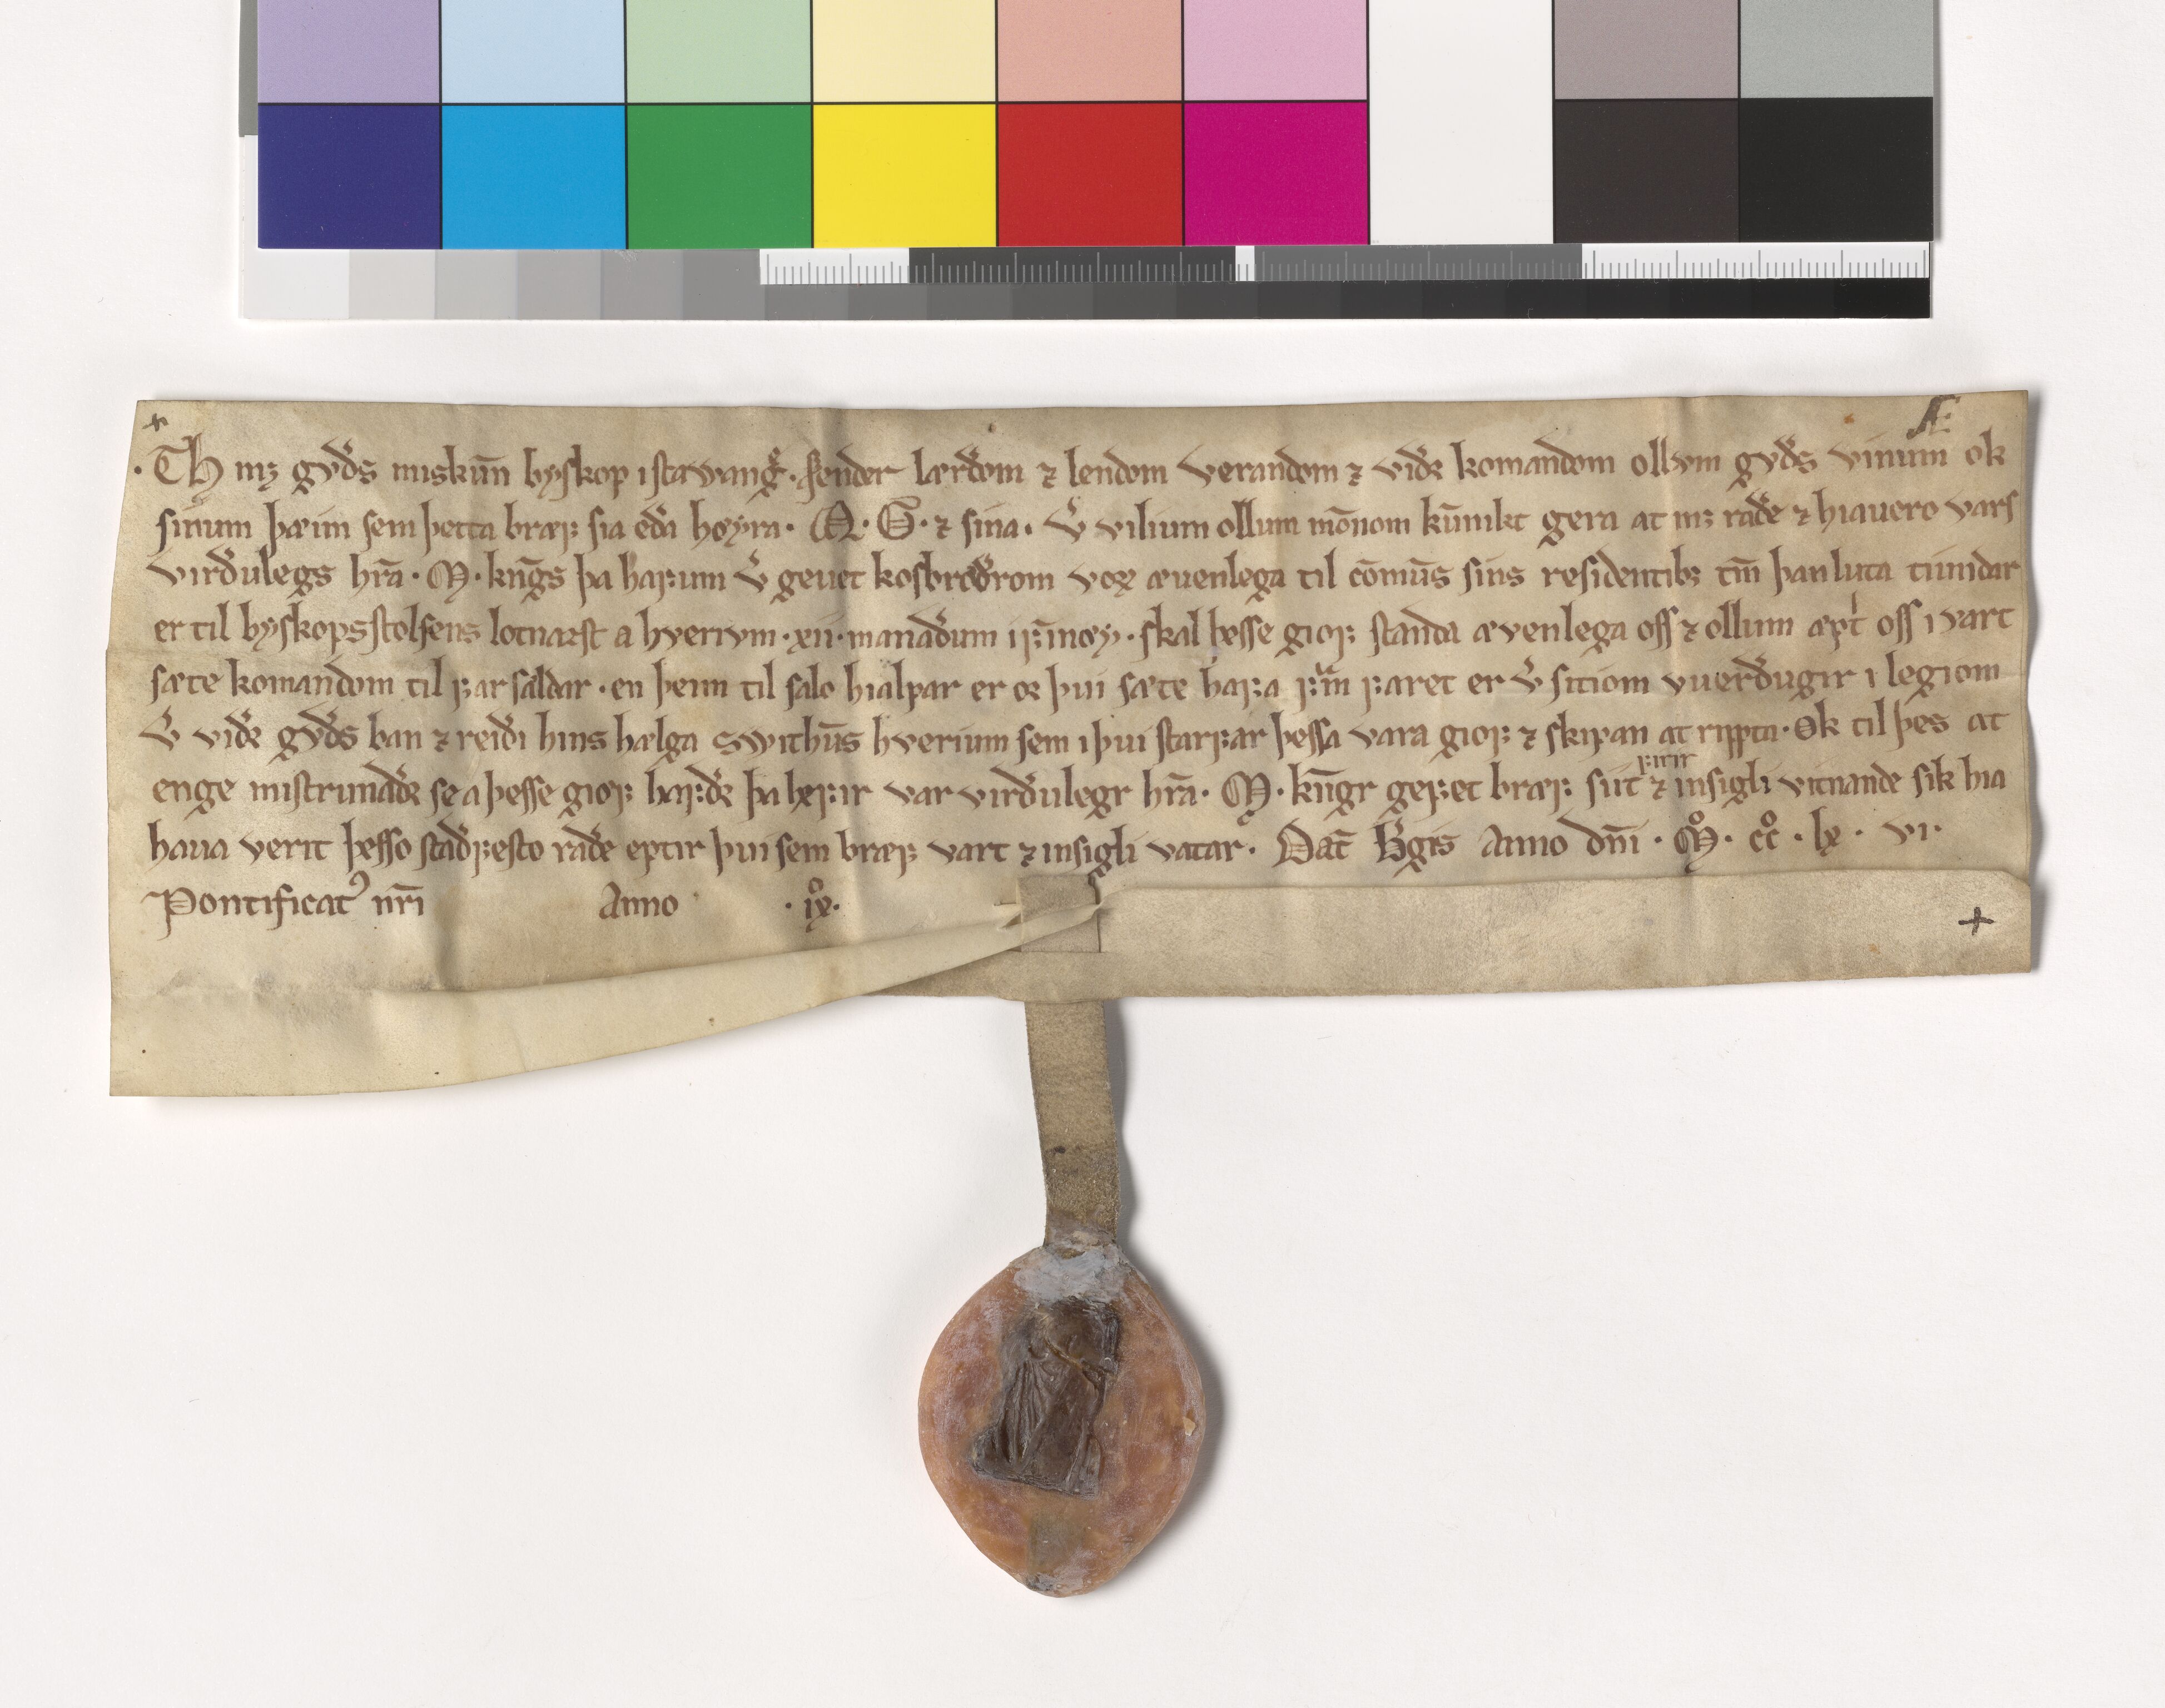 Æ
·Th mꝫ gvðs miskūn byskop i stawangͬ. sender lærðom ⁊ lendom verandom ⁊ viðr komandom ollvm gvðs vinum ok
sinum þæim sem þetta bræꝼ sia eða høyra. Q. G. ⁊ sina. V̆ vilium ollum mōnom kūnikt gera at mꝫ raðe ⁊ hiauero vars
virðulegs hr̄a. M. kn̄gs þa haꝼum v̆ geuet korsbrœðrom voꝛ æuenlega til cōmūs sins residentibꝫ tm̄ þan luta tiundar
er til byskopsstolsens lotnazst a hverivm .xii. manaðum i ꝼīnœy. skal þesse gioꝼ standa ævenlega oss ⁊ ollum æpt͛ oss i vart
sæte komandom til ꝼar sældar. en þeim til salo hialpar er oꝛ þui sæte haꝼa ꝼͬm ꝼaret er v̆ sitiom vuerðugir i legiom
v̆ viðr gvðs ban ⁊ reiði hins hælga swithūs hverium sem i þui starꝼar þessa vara gioꝼ ⁊ skipan at rippta. Ok til þes at
enge mistrunaðr se a þesse gioꝼ hæꝼðr þa heꝼir var virðulegr hr̄a. M. kūgr geꝼet bræꝼ siit ꝼirir ⁊ insigli vitnande sik hia
haua verit þesso staðꝼesto raðe eptir þui sem bræꝼ vart ⁊ insigli vatar. Dat̄ B̄gis Anno dn̄i. Mͦ. ccͦ. lx. vi.
Pontificatꝰ nr̄i Anno .ixͦ.